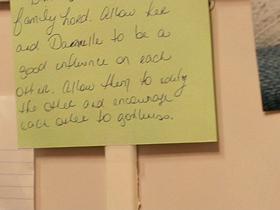 family hold. Allow her
and Dannelle to be a
good influence on each
other. Allow them to edify
the other and encourage
each other to godliness.